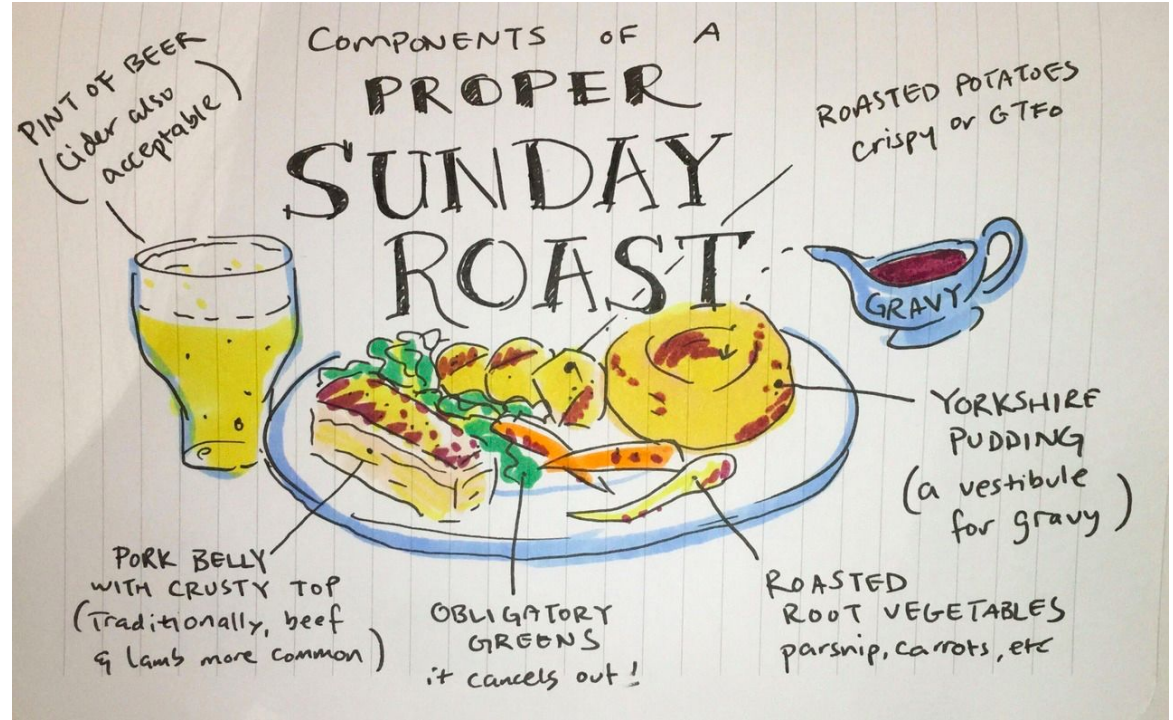 COMPONENTS OF A
PROPER
SUNDAY
ROAST
PINT OF BEER
(cider also
acceptable)
ROASTED POTATOES
crispy or GTFO
GRAVY
YORKSHIRE
PUDDING
(a vestibule
for gravy)
PORK BELLY
WITH CRUSTY TOP
(Traditionally, beef
& lamb more common)
OBLIGATORY
GREENS
it cancels out!
ROASTED
ROOT VEGETABLES
parsnip, carrots, etc